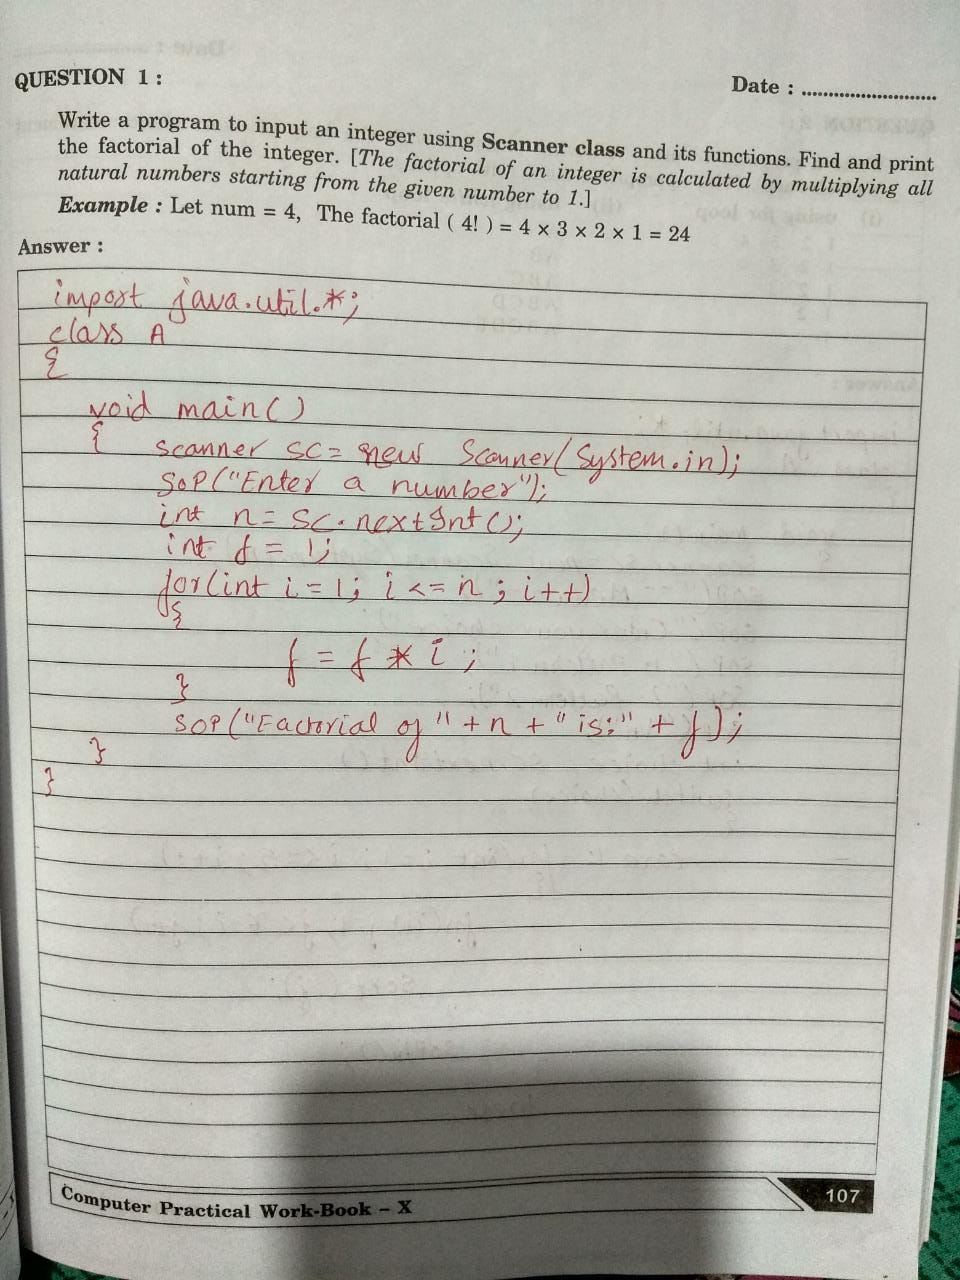 QUESTION 1 :
Date : ..........................
Write a program to input an integer using Scanner class and its functions. Find and print
the factorial of the integer. [The factorial of an integer is calculated by multiplying all
natural numbers starting from the given number to 1.]
Example : Let num = 4, The factorial ( 4! ) = 4 × 3 × 2 × 1 = 24
Answer :
import java.util.*;
class A
{
void main()
{ scanner sc = new Scanner(System.in);
SOP("Enter a number");
int n = sc.nextInt();
int f = 1;
for(int i = 1; i <= n ; i++)
{
f = f * i ;
}
SOP("Factorial of" + n + "is:" + f);
}
}
Computer Practical Work-Book – X
107